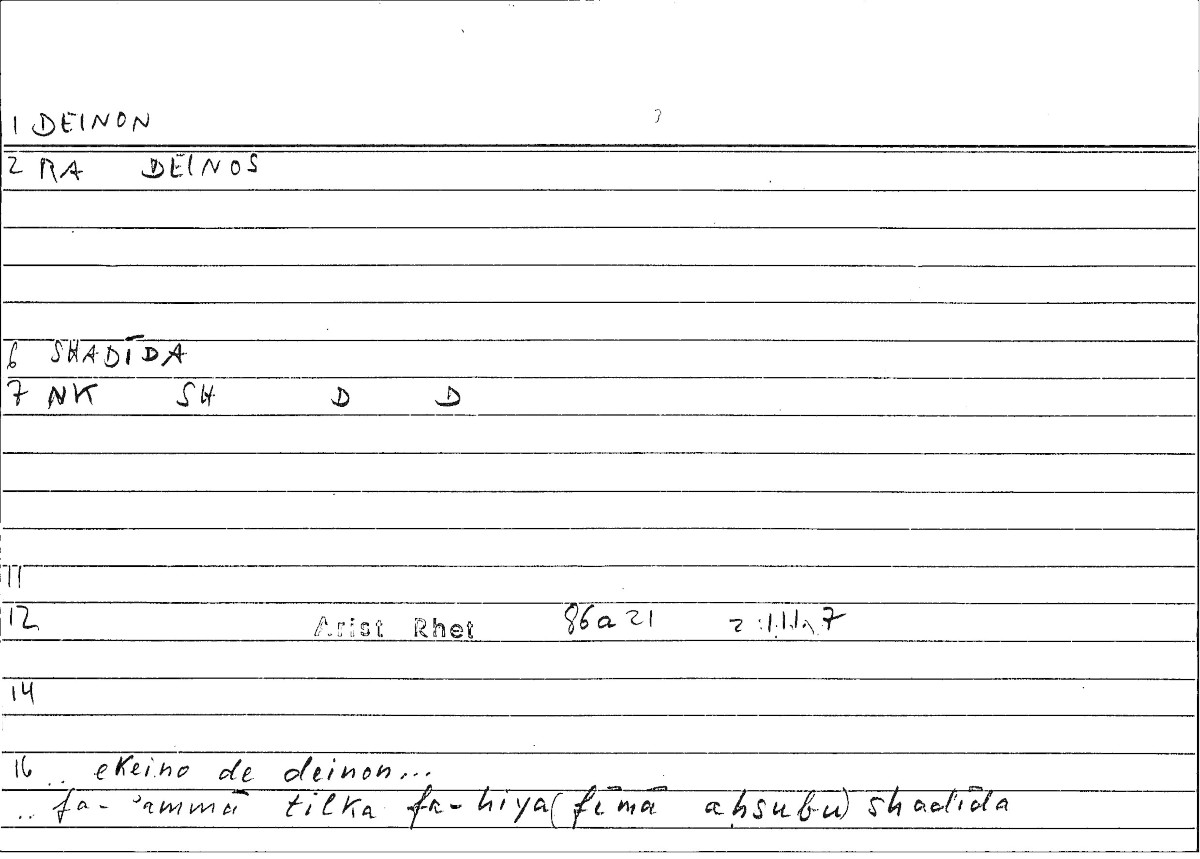 1 DEINON
2 RA DEINOS
6 SHADĪDA
7 NK SH D D
11
12 Arist Rhet 86a21
14
16 .. ekeino de deinon...
.. fa-'ammā tilka fa-hiya (fīmā aḥsubu) shadīda